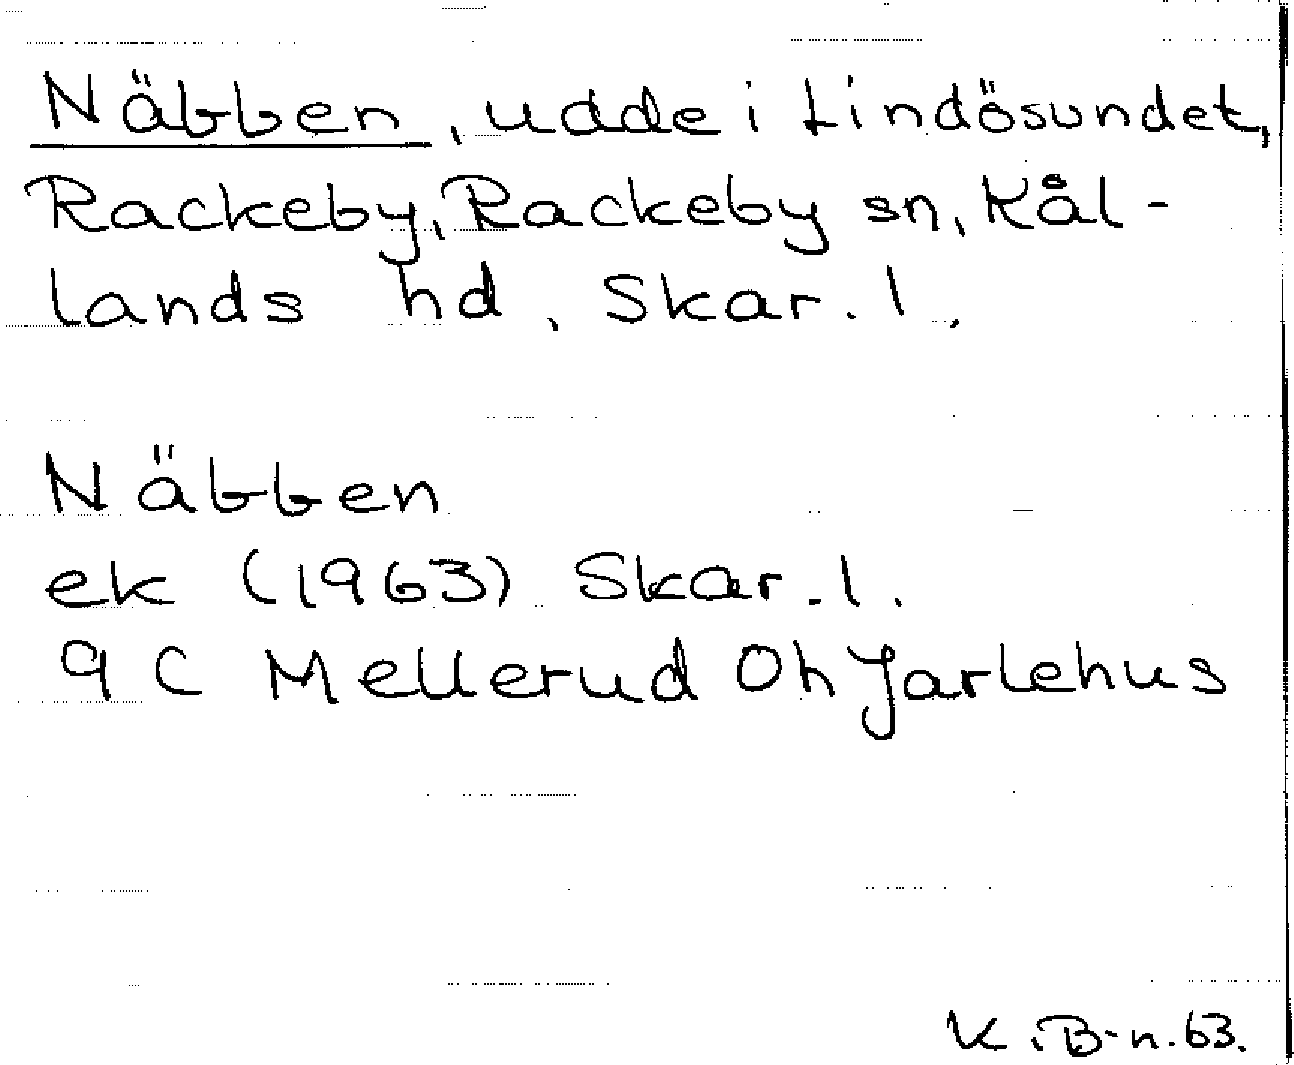 Näbben, udde i Lindösundet,
Rackeby, Rackeby sn, Kål-
lands hd, Skar. l.
Näbben
ek (1963) Skar. l.
9 C Mellerud Oh Jarlehus
K. B-n. 63.